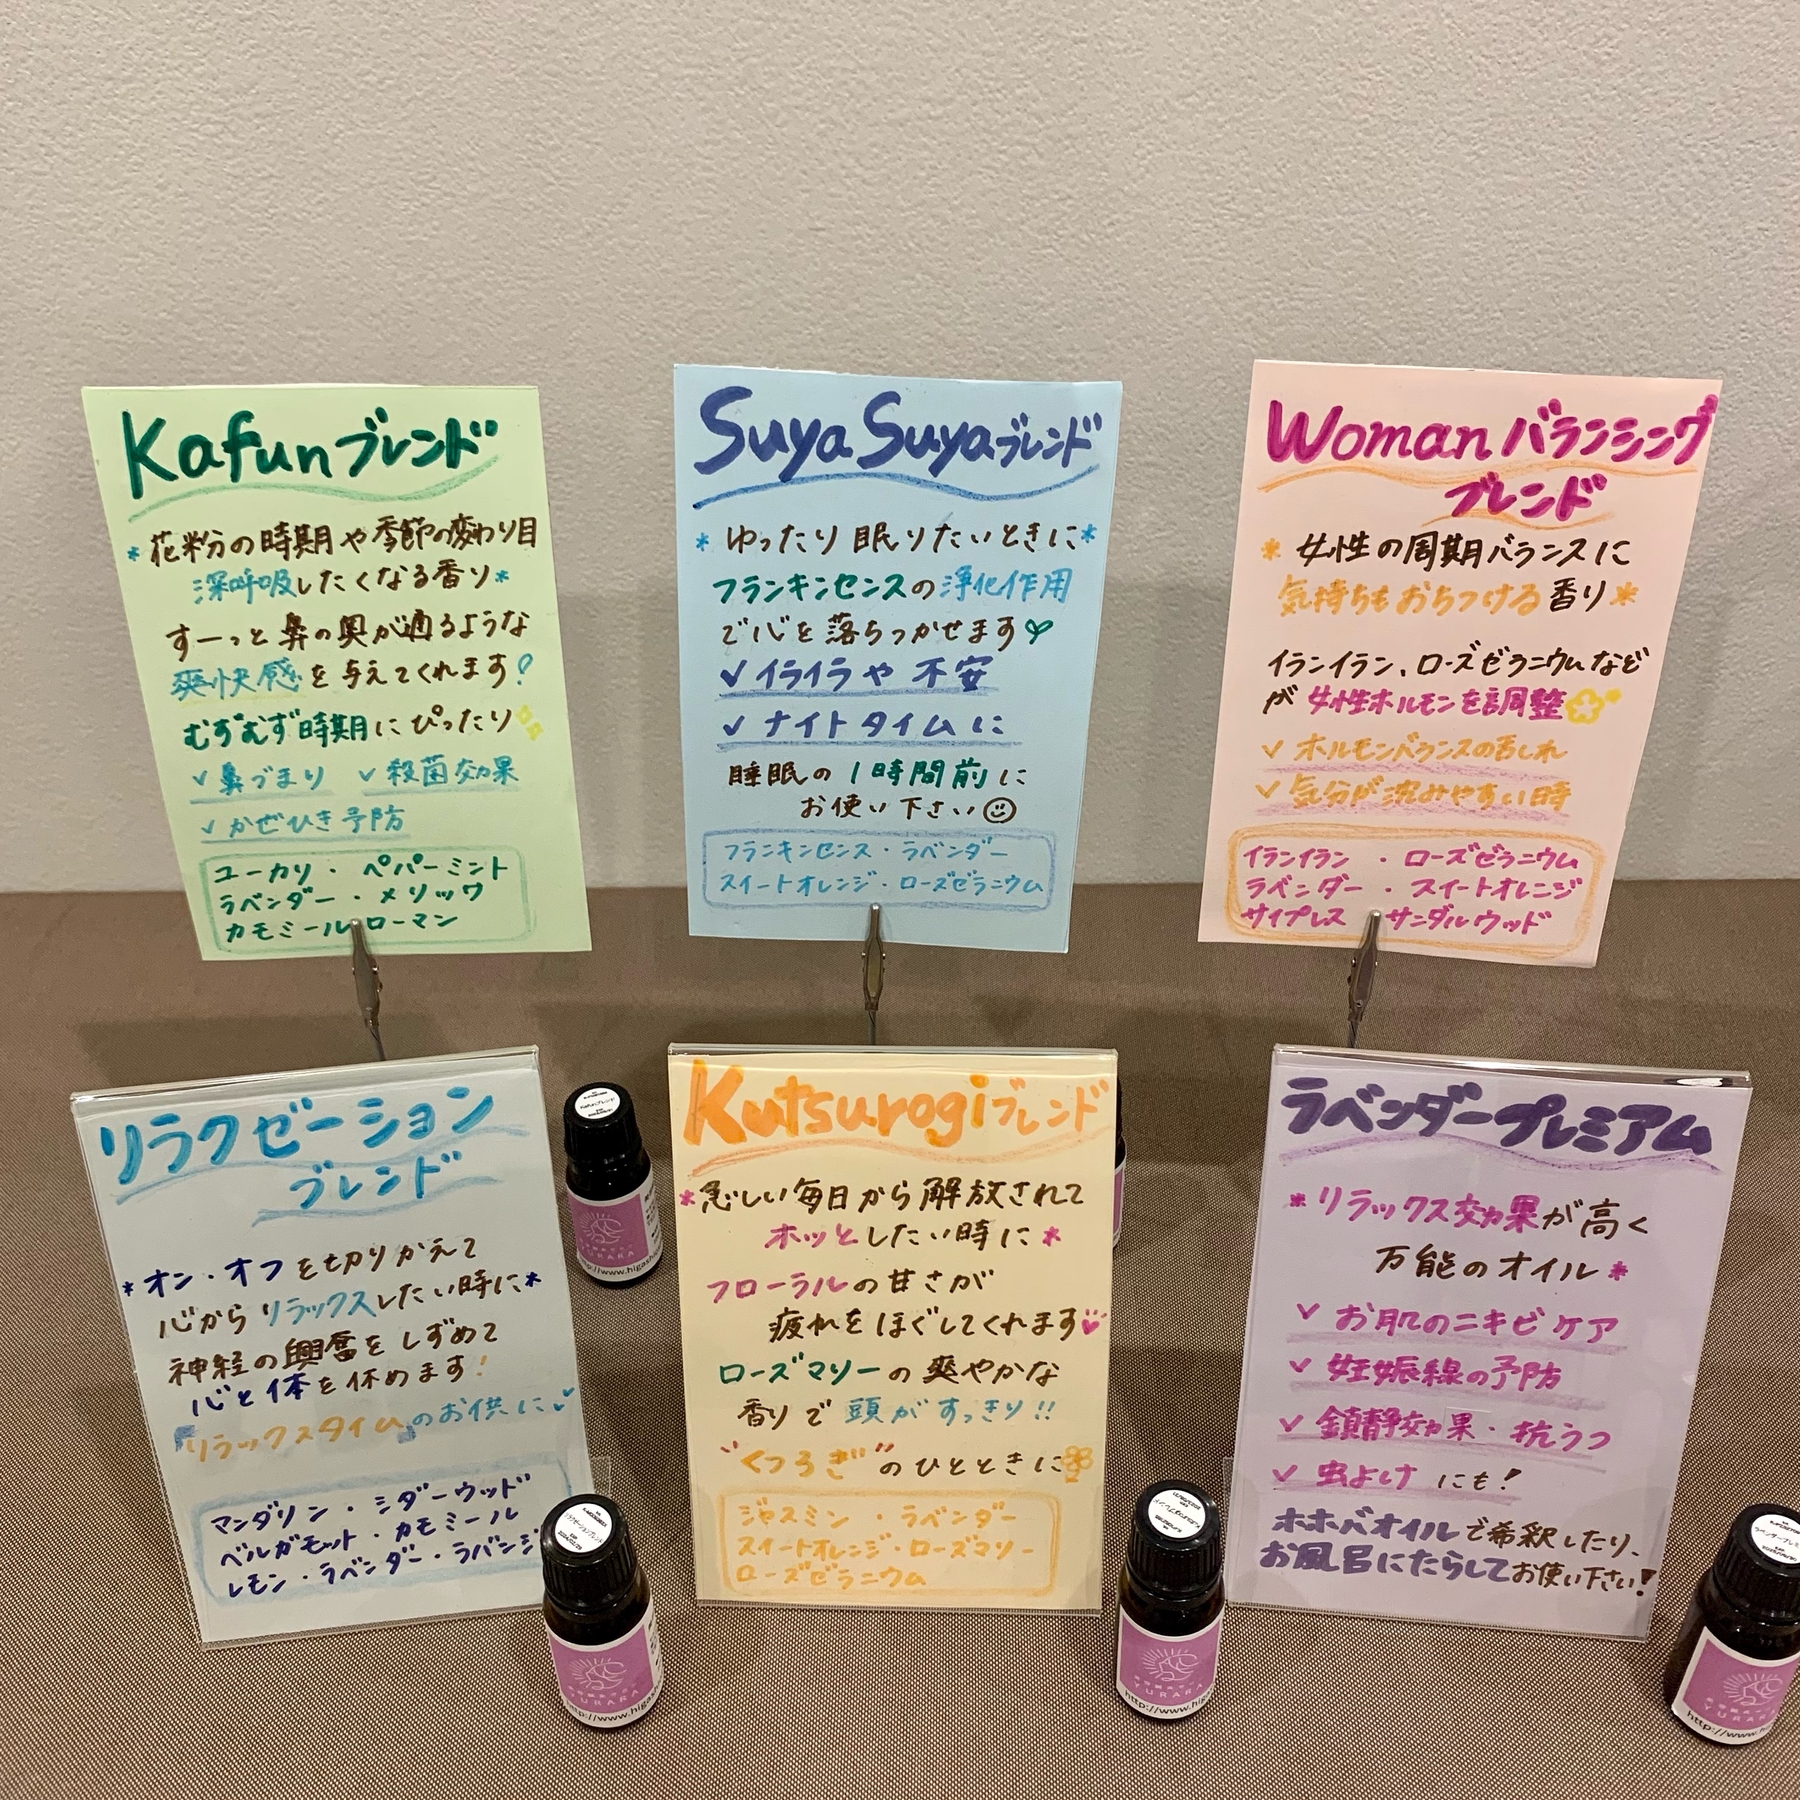 Kafunブレンド
*花粉の時期や季節の変わり目
深呼吸したくなる香り*
すーっと鼻の奥が通るような
爽快感を与えてくれます!
むずむず時期にぴったり
✓鼻づまり ✓殺菌効果
✓かぜひき予防
ユーカリ・ペパーミント
ラベンダー・メリッサ
カモミールローマン
Suya Suyaブレンド
*ゆったり眠りたいときに*
フランキンセンスの浄化作用
で心を落ちつかせます
✓イライラや不安
✓ナイトタイムに
睡眠の1時間前に
お使い下さい
フランキンセンス・ラベンダー
スイートオレンジ・ローズゼラニウム
Womanバランシング
ブレンド
*女性の周期バランスに
気持ちもおちつける香り*
イランイラン、ローズゼラニウムなど
が女性ホルモンを調整
✓ホルモンバランスの乱れ
✓気分が沈みやすい時
イランイラン・ローズゼラニウム
ラベンダー・スイートオレンジ
サイプレス サンダルウッド
リラクゼーション
ブレンド
*オン・オフを切りかえて
心からリラックスしたい時に*
神経の興奮をしずめて
心と体を休めます!
『リラックスタイム』のお供に
マンダリン・シダーウッド
ベルガモット・カモミール
レモン・ラベンダー・ラバンジン
Kutsurogiブレンド
*忙しい毎日から解放されて
ホッとしたい時に*
フローラルの甘さが
疲れをほぐしてくれます
ローズマリーの爽やかな
香りで頭がすっきり!!
"くつろぎ"のひとときに
ジャスミン・ラベンダー
スイートオレンジ・ローズマリー
ローズゼラニウム
ラベンダープレミアム
*リラックス効果が高く
万能のオイル*
✓お肌のニキビケア
✓妊娠線の予防
✓鎮静効果・抗うつ
✓虫よけにも!
ホホバオイルで希釈したり、
お風呂にたらしてお使い下さい!
Kafunブレンド
YURARA
http://www.higashi
リラクゼーションブレンド
YURARA
http://www.higash
Kutsurogiブレンド
YURARA
http://www.hig
ラベンダープレミ
YURARA
http://www.h